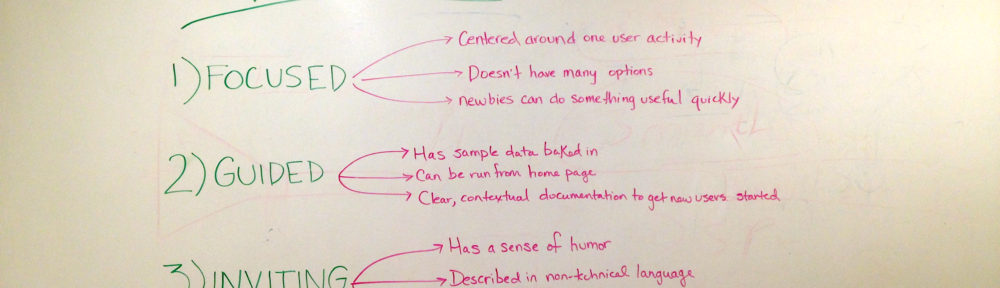 1) FOCUSED
Centered around one user activity
Doesn't have many options
newbies can do something useful quickly
2) GUIDED
Has sample data baked in
Can be run from home page
Clear, contextual documentation to get new users started
3) INVITING
Has a sense of humor
Described in non-technical language